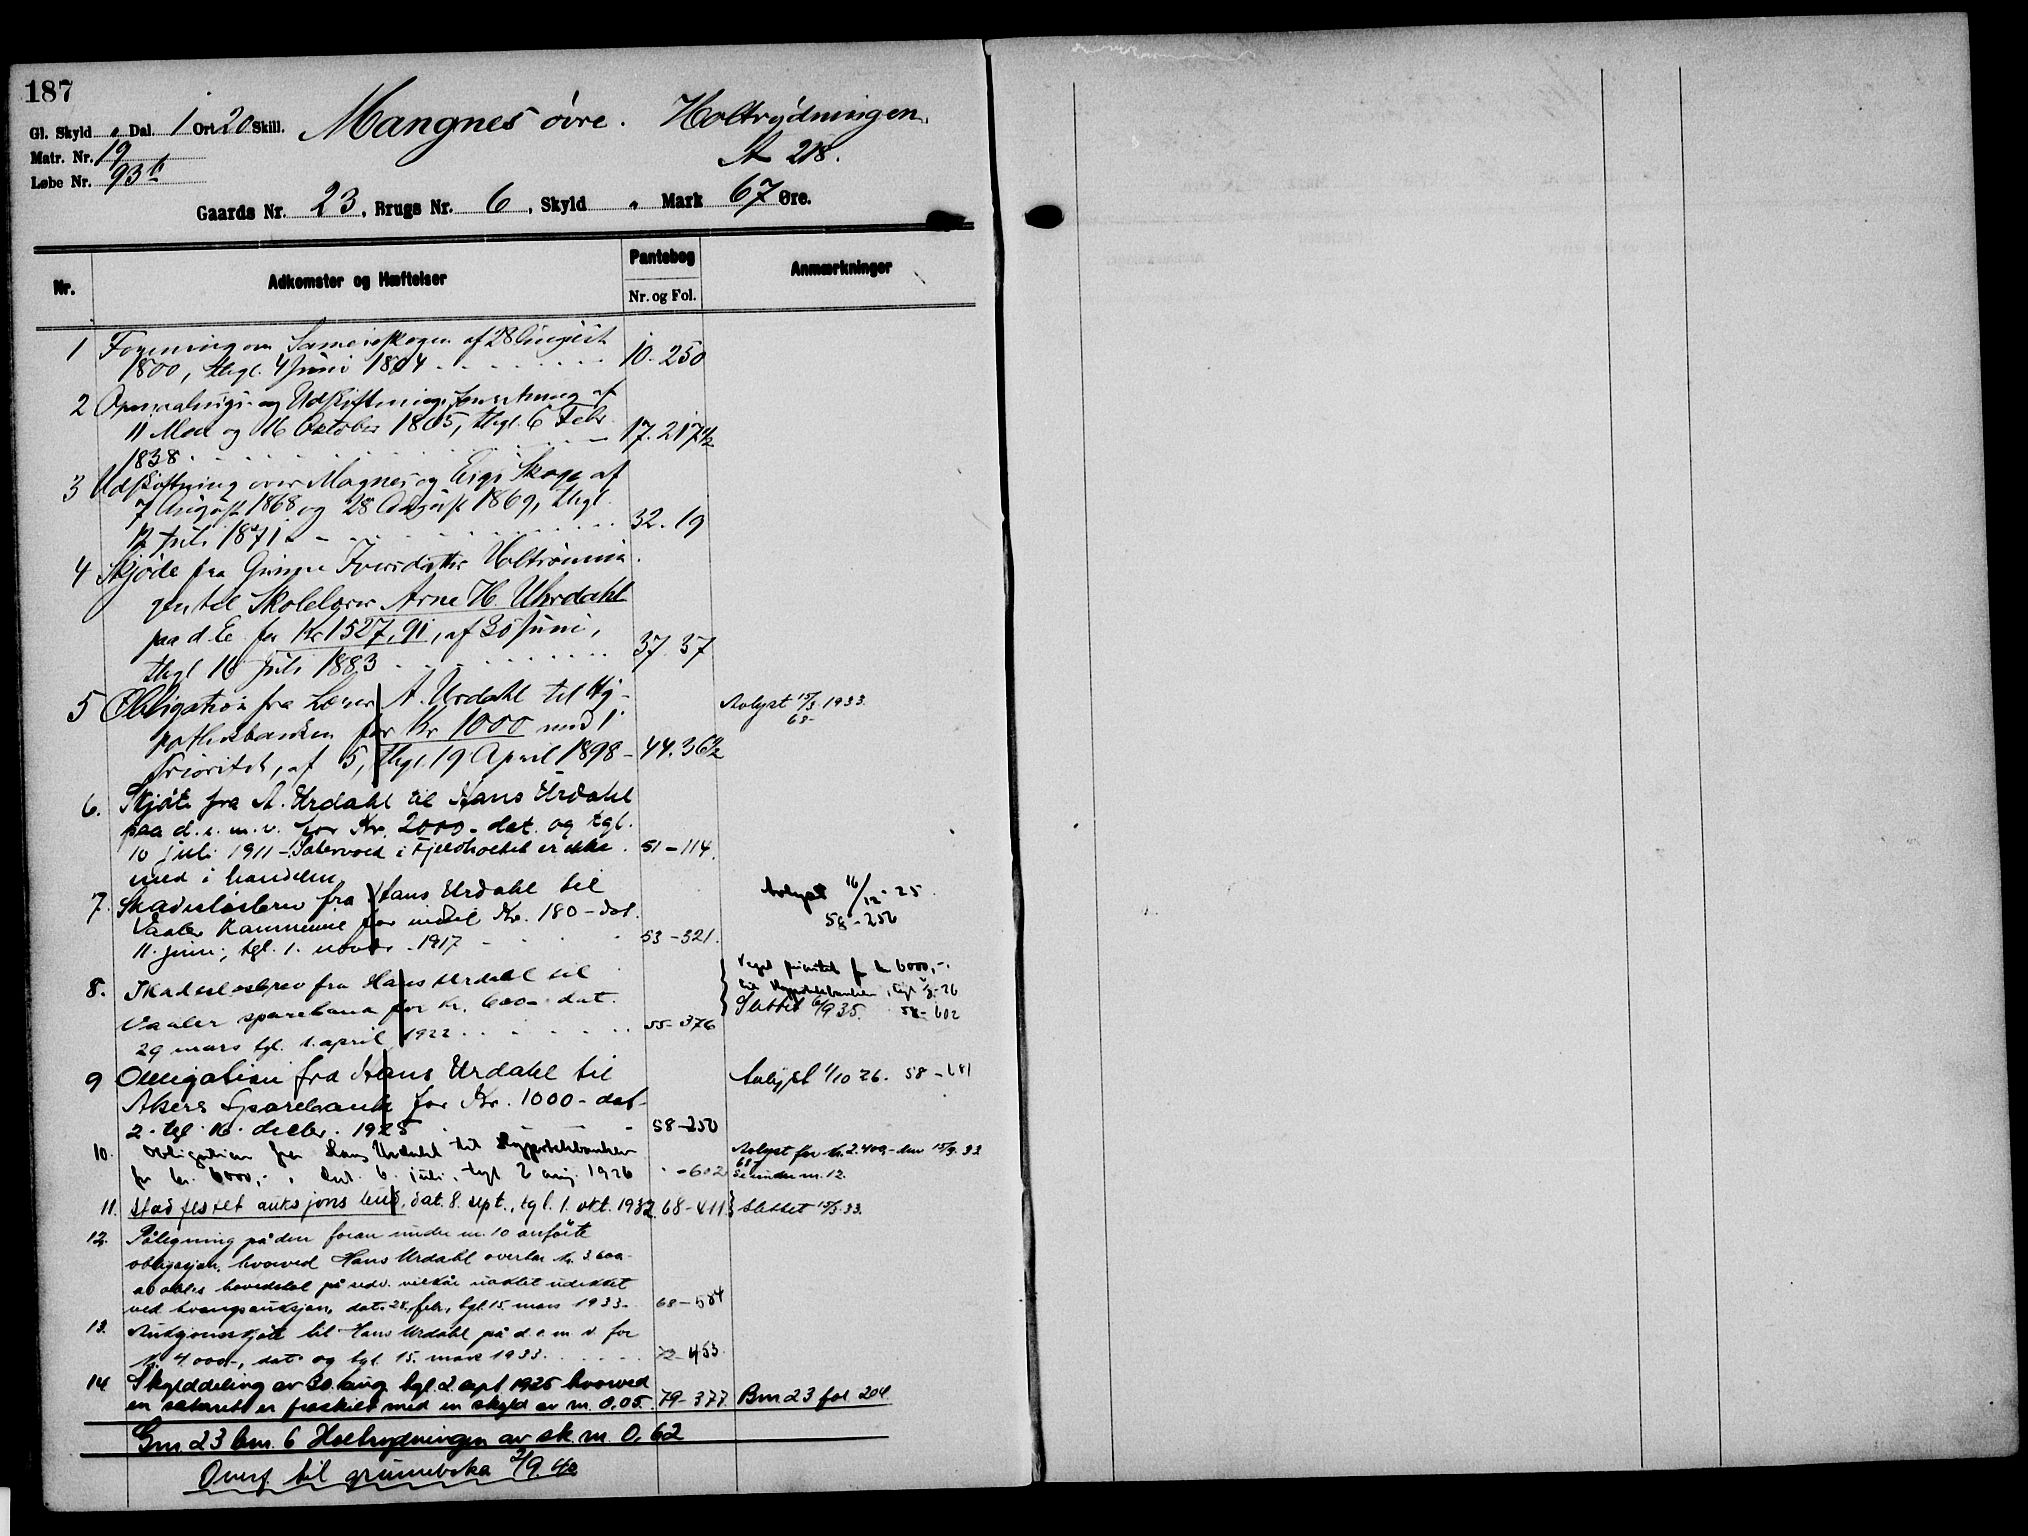 187
Gl. Skyld „ Dal. 1 Ort 20 Skill. Mangnes övre. Holtrydningen.
Matr. Nr. 19 A 218.
Løbe Nr. 93 b
Gaards Nr. 23, Brugs Nr. 6, Skyld „ Mark 67 Øre.
Nr. Adkomster og Hæftelser Pantebog Nr. og Fol. Anmærkninger
1 Forening om Sameieskogen af 28 August
1800, thgl. 4 Juni 1804 10-250
2 Opmaalings- og Udskiftningsforretning af
11 Mai og 16 Oktober 1805, thgl. 6 Febr
1838 17.217½
3 Udskiftning over Magnes og Eigs Skoge af
7 August 1868 og 28 August 1869, thgl.
12 Juli 1871 32.19
4 Skjøde fra Gunne Iversdatter Holtrönnin
gen til Skolelærer Arne H. Uhrdahl
paa d. E. for Kr 1527,91, af Juni,
thgl 16 Juli 1883 37.37
5 Obligation fra Lærer A. Urdahl til Hy- Avlyst 15/3 1933.
pothekbanken for Kr 1000 med 1 68-
Prioritet, af 5, thgl. 19 April 1898 - 44.36½
6. Skjøte fra A. Urdahl til Hans Urdahl
paa d. e. m. v. for Kr. 2000 - dat. og tgl.
10 juli 1911 - Sætervold i Fjeldholtet er ikke 51-114.
med i handelen
7. Skadesløsbrev fra Hans Urdahl til Avlyst 16/12-25
Vaaler kommune for indtil Kr. 180 - dat. 58-250
11. juni, tgl. 1. novbr. 1917 53-321.
8. Skadesløsbrev fra Hans Urdahl til Veget prioritet for kr 6000,-
Vaaler sparebank for kr. 600 - dat. til Hypotekbanken, tgl 2/8-26
29 mars tgl. 1. april 1922 55-376 Slettet 6/9 35. 58-602
9 Obligation fra Hans Urdahl til Avlyst 1/10 26. 58-681
Akers Sparebank for Kr. 1000 - dat.
2. tgl. 16. decbr. 1925 58-250
10. Obligation fra Hans Urdahl til Hypotekbanken Avlyst for kr. 2.400 - den 15/3. 33
for kr. 6000,-, dat. 6. juli, tgl 2 aug. 1926 " -602 68- Se under nr. 12.
11. Stadfestet auksjonsbud, dat. 8. sept., tgl. 1. okt. 1932. 68-411 Slettet 15/3. 33.
12. Påtegning på den foran under nr. 10 anførte
obligasjon, hvorved Hans Urdahl overtar kr. 3600
av obl.s hovedstol på vilkår uavktet udekket
ved tvangsauksjon, dat. 28. febr., tgl. 15. mars 1933. 68-584
13. Auksjonsskjøte til Hans Urdahl på d. e. m. v. for
kr. 4.000-, dat. og tgl. 15. mars 1933. 72-453
14 Skylddeling av 30. aug. tgl. 2. sept 1925 hvorved
en seterett er fraskilt med en skyld av m. 0.05. 79-377. Bm 23 fol 204.
Gnr 23 bnr. 6 Holtrydningen av sk. m. 0,62
Overf. til grunnboka 2/9. 40